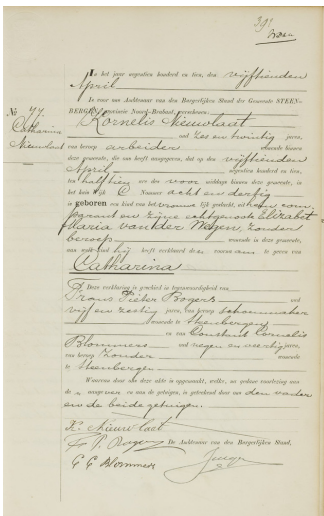 In het jaar negentien honderd en tien, den vijftienden
April
Is voor ons Ambtenaar van den Burgerlijken Stand der Gemeente STEEN-
BERGEN, provincie Noord-Brabant, verschenen:
No 77
Kornelis Nieuwlaat
Catharina
Nieuwlaat
oud zes en twintig jaren,
van beroep arbeider wonende binnen
deze gemeente, die ons heeft aangegeven, dat op den vijftienden
April negentien honderd en tien,
ten half tien ure des voor middags binnen deze gemeente, in
het huis wijk C Nummer acht en dertig
is geboren een kind van het vrouwelijk geslacht, uit hem com-
parant en zijne echtgenoote Elizabet
Maria van der Wegen, zonder
beroep wonende in deze gemeente,
aan welk kind hij heeft verklaard den voornaam te geven van
Catharina
Deze verklaring is geschied in tegenwoordigheid van
Frans Pieter Bogers oud
vijf en zestig jaren, van beroep schoenmaker
wonende te Steenbergen
en van Constant Cornelis
Blommers oud negen en veertig jaren,
van beroep zonder wonende
te Steenbergen
Waarvan door ons deze akte is opgemaakt, welke, na gedane voorlezing aan
de aangever en aan de getuigen, is geteekend door ons den vader
en de beide getuigen.
K. Nieuwlaat
F. P. Bogers De Ambtenaar van den Burgerlijken Stand,
C C Blommers